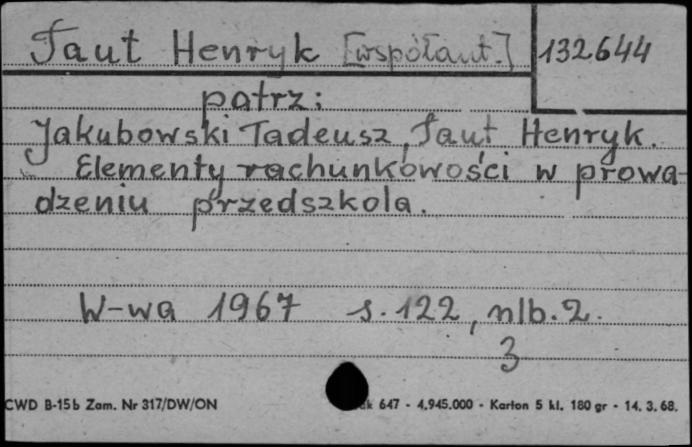 Taut Henryk [współaut.] 132644
patrz:
Jakubowski Tadeusz, Taut Henryk.
Elementy rachunkowości w prowa-
dzeniu przedszkola.
W-wa 1967 s. 122, nlb. 2.
3
CWD B-15b Zam. Nr 317/DW/ON 647 - 4.945.000 - Karton 5 kl. 180 gr - 14. 3. 68.